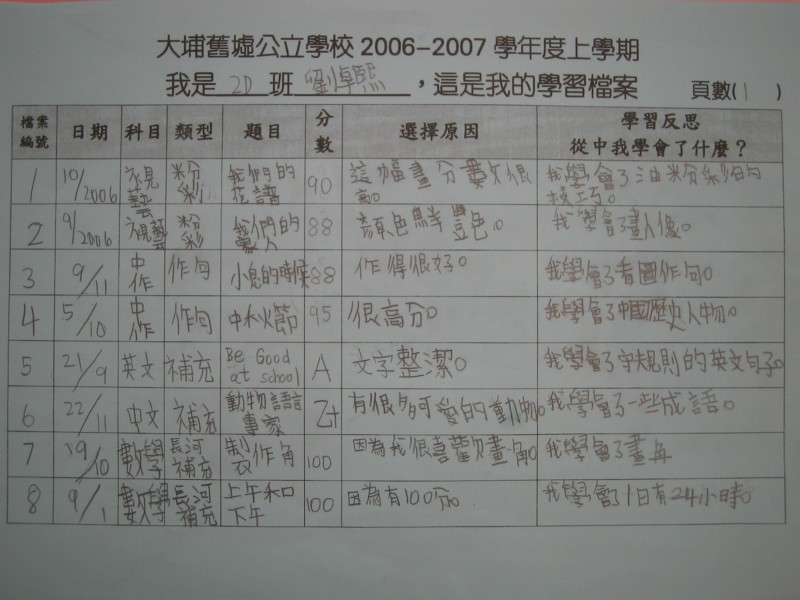 大埔舊墟公立學校 2006-2007 學年度上學期
我是 2D 班 劉倬熙 ，這是我的學習檔案 頁數( 1 )
檔案編號 日期 科目 類型 題目 分數 選擇原因 學習反思 從中我學會了什麼？
1 10/2006 視藝 粉彩 我們的花譜 90 這幅畫分數很高。 我學會了油粉彩的技巧。
2 9/2006 視藝 粉彩 我們的家人 88 顏色鮮豐色。 我學會了畫人像。
3 9/11 中作 作句 小息的時候 88 作得很好。 我學會了看圖作句。
4 5/10 中作 作句 中秋節 95 很高分。 我學會了中國歷史人物。
5 21/9 英文 補充 Be Good at school A 文字整潔。 我學會了守規則的英文句子。
6 22/11 中文 補充 動物語言專家 乙+ 有很多可愛的動物。 我學會了一些成語。
7 19/10 數學 長河補充 製作角 100 因為我很喜歡畫角。 我學會了畫角
8 9/1 數學 長河補充 上午和下午 100 因為有100分。 我學會了1日有24小時。